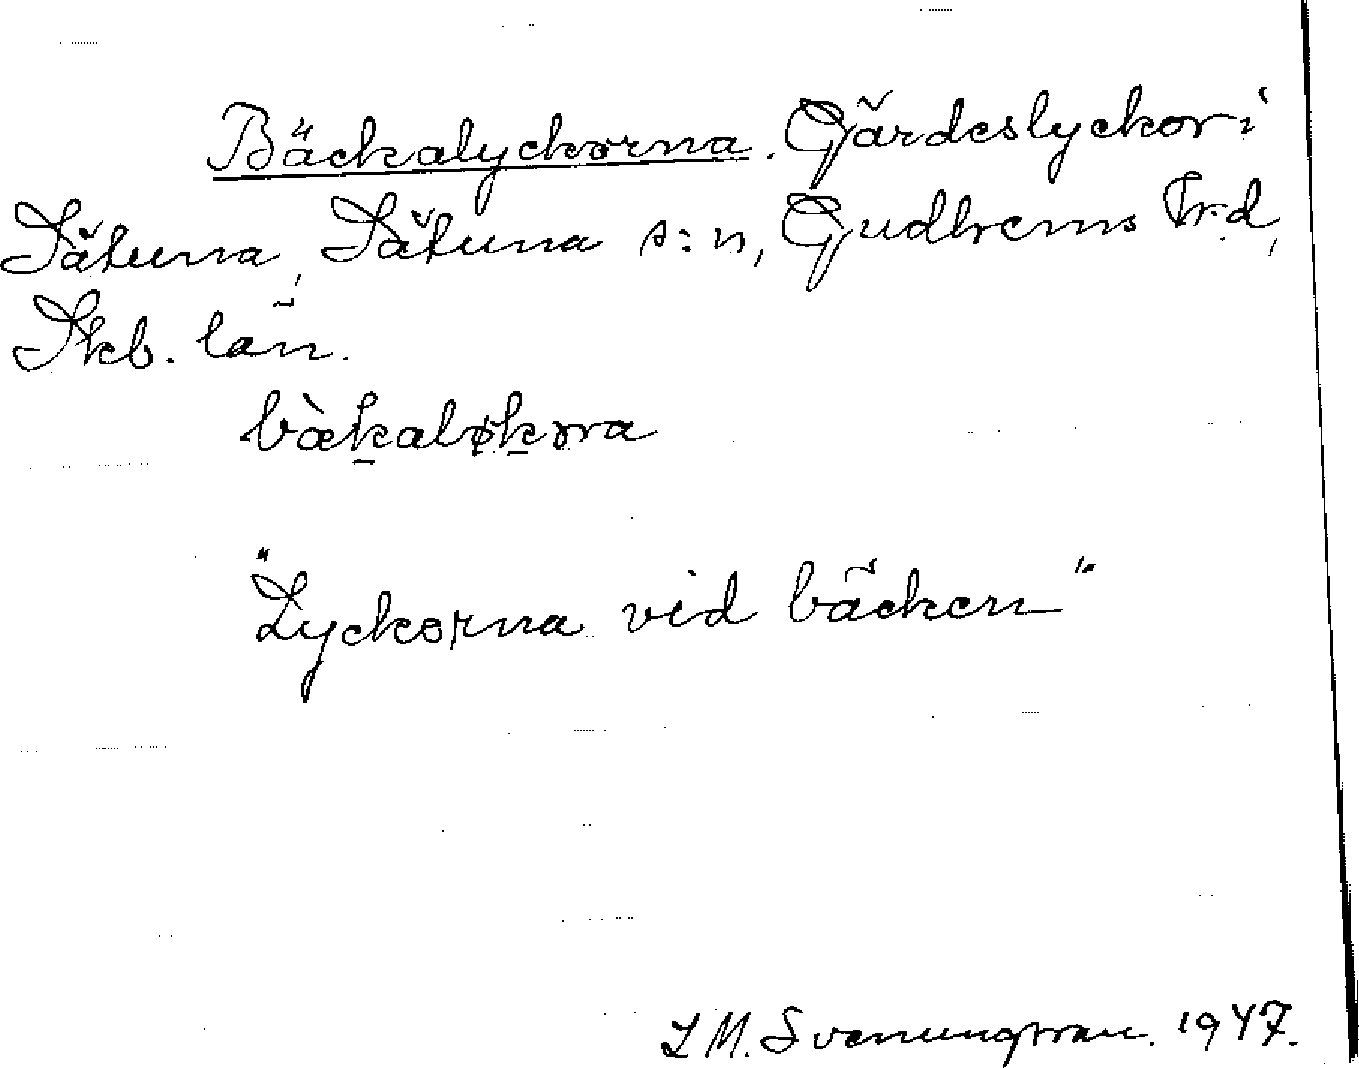 Bäckalyckorna. Gärdeslyckor i
Sätuna, Sätuna s:n, Gudhems hrd,
Skb. län.
bækaløkora
"Lyckorna vid bäcken"
L M. Svenungsson. 1947.